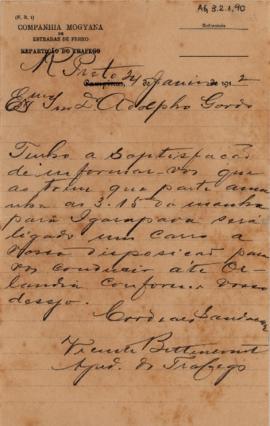 AG 3.2.1.90
(F. R. 1)
Referencia
COMPANHIA MOGYANA
DE
ESTRADAS DE FERRO
REPARTIÇÃO DO TRAFEGO
R. Preto 24 de Janeiro de 1912
Exmo Snr Dr Adolpho Gordo
Tenho a
de informar-vos que
ao trem que parte ama
nha as 3.15 da manha
para Igarapava será
ligado um carro a
vossa disposição para
vos conduzir até Or-
landia conforme vosso
desejo.
Cordeaes
Vicente Bittencourt
Ajud. do Trafego